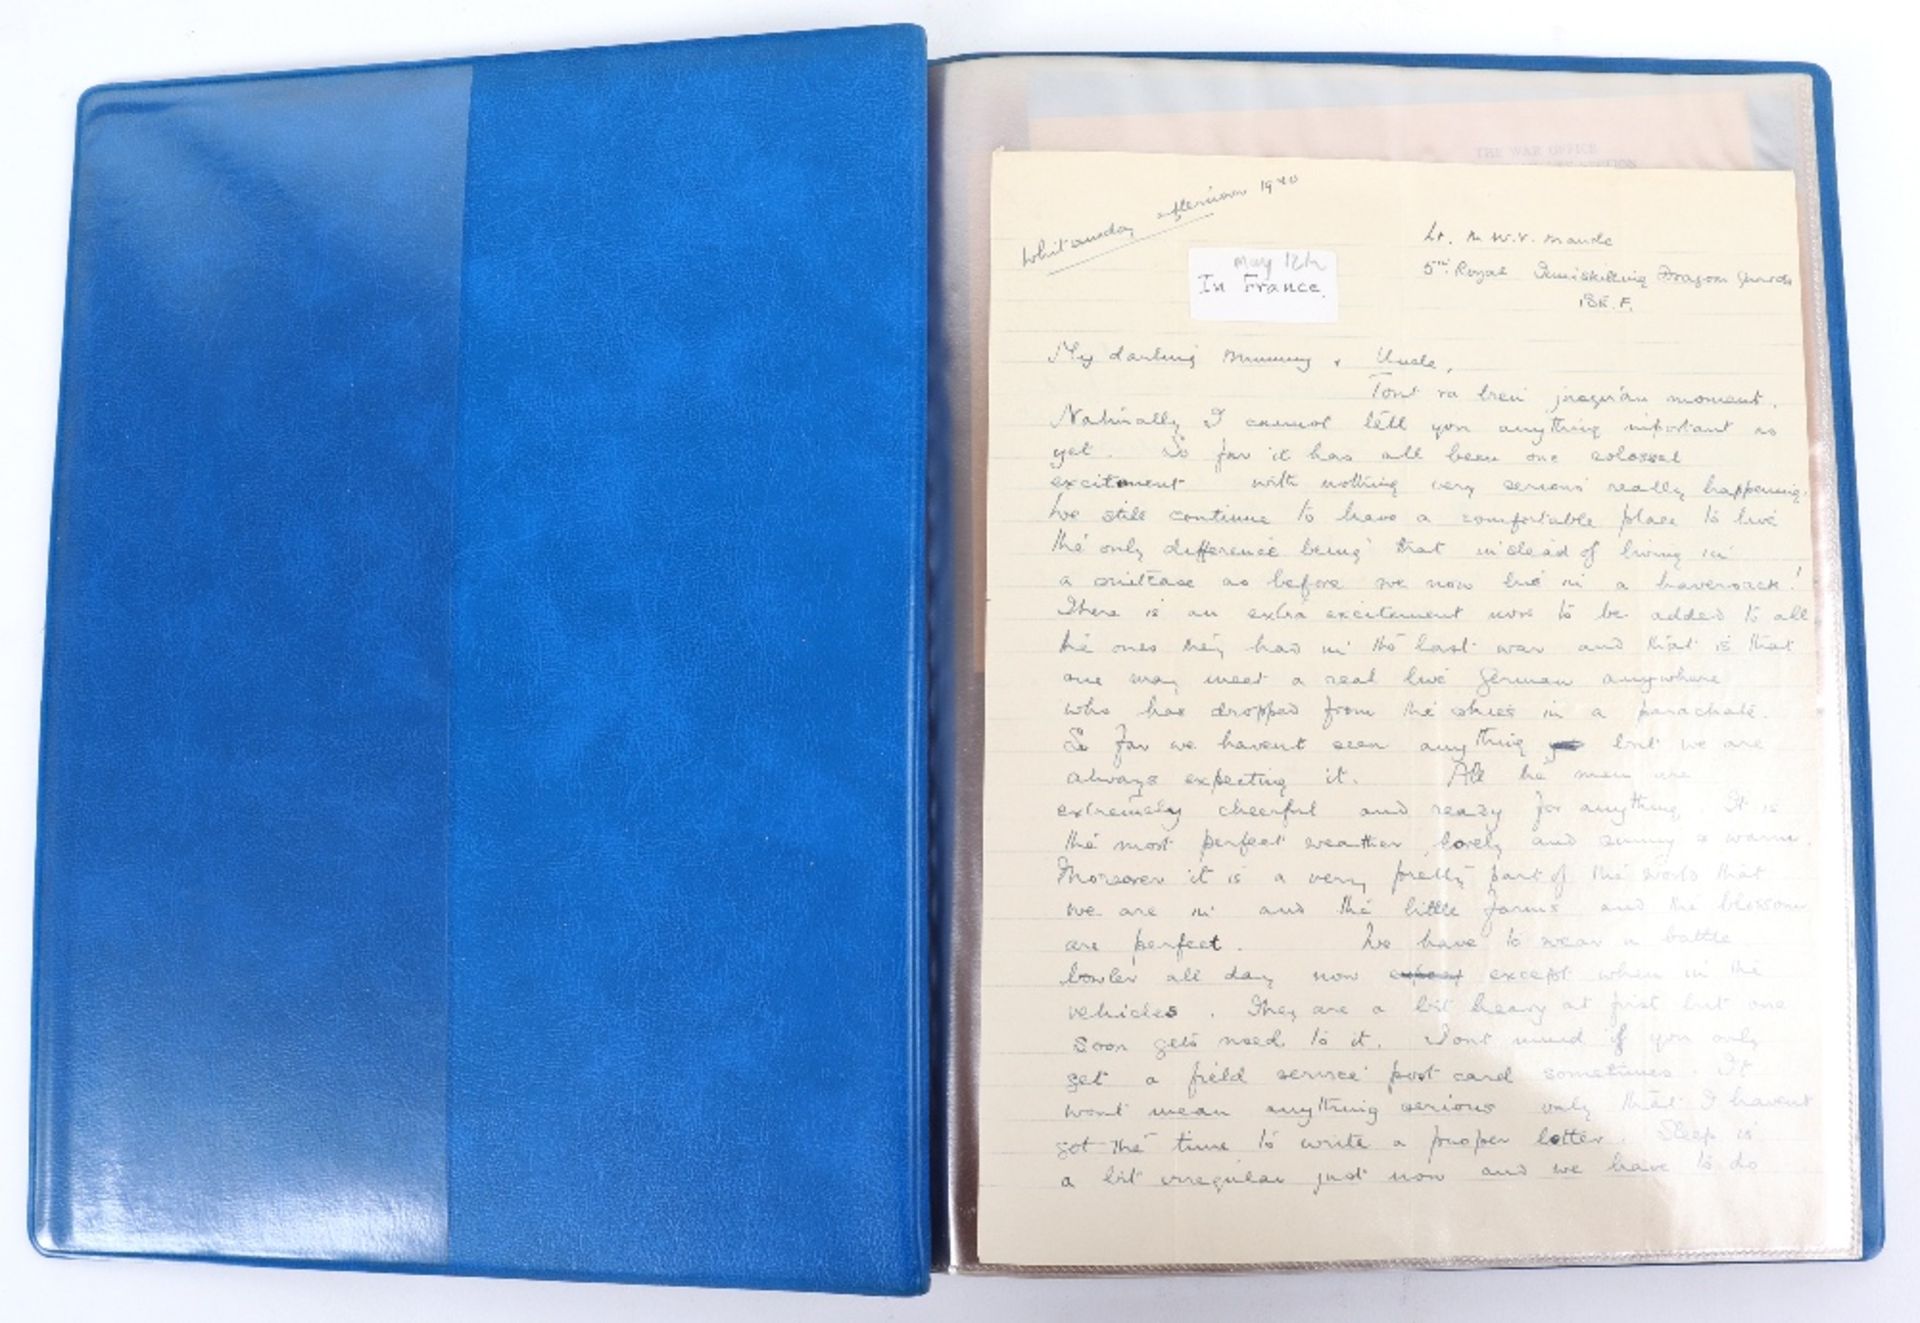 THE WAR OFFICE
Whitsunday afternoon 1940
May 12th
In France.
Lt. M W.V. Maude
5th Royal Inniskilling Dragoon Guards
B.E.F.
My darling Mummy & Uncle,
Tout va bien jusqu'au moment.
Naturally I cannot tell you anything important as
yet. So far it has all been one colossal
excitement with nothing very serious really happening.
We still continue to have a comfortable place to live
the only difference being that instead of living in
a suitcase as before we now live in a haversack!
There is an extra excitement now to be added to all
the ones they had in the last war and that is that
one may meet a real live German anywhere
who has dropped from the skies in a parachute.
So far we havent seen anything but we are
always expecting it. All the men are
extremely cheerful and ready for anything. It is
the most perfect weather lovely and sunny & warm.
Moreover it is a very pretty part of the world that
we are in and the little farms and the blossom
are perfect. We have to wear a battle
bowler all day now except when in the
vehicles. They are a bit heavy at first but one
soon gets used to it. Dont mind if you only
get a field service post card sometimes. It
wont mean anything serious only that I havent
got the time to write a proper letter. Sleep is
a bit irregular just now and we have to do